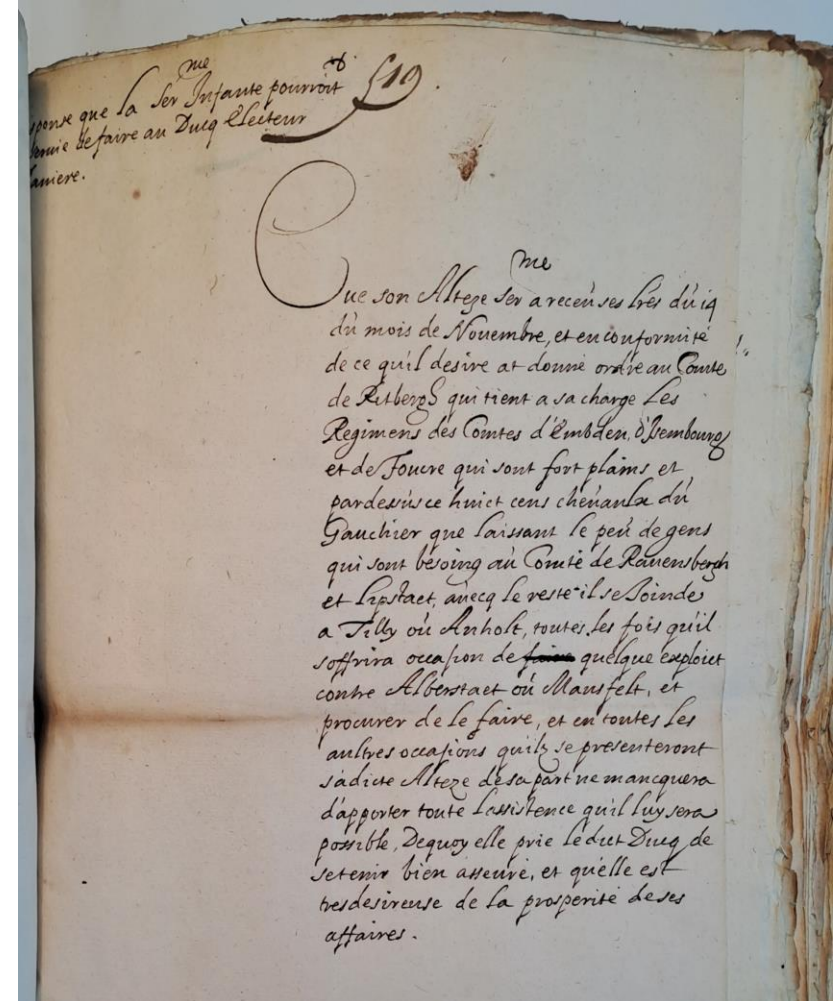 sponse que la Ser.me Infante pourroit
servie de faire au Ducq Electeur
aniere.
519
Que son Alteze Ser.me a receu ses lres du 19
du mois de Nouembre, et en conformité
de ce qu'il desire at donné ordre au Comte
de Ritbergh qui tient a sa charge Les
Regimens des Comtes d'Embden, d'Isembourg
et de Foucre qui sont fort plains et
pardessus ce huict cens cheuaulx du
Gauchier que laissant le peu de gens
qui sont besoing au Comté de Rauensbergh
et Lipstaet, auecq le reste il se Joinde
a Tilly ou Anholt, toutes les fois qu'il
s'offrira occasion de faire quelque exploict
contre Alberstaet ou Mansfelt, et
procurer de le faire, et en toutes les
aultres occasions quilz se presenteront
sadicte Alteze de sa part ne mancquera
d'apporter toute l'assistence qu'il luy sera
possible, Dequoy elle prie ledict Ducq de
se tenir bien asseuré, et qu'elle est
tresdesireuse de la prosperité de ses
affaires.